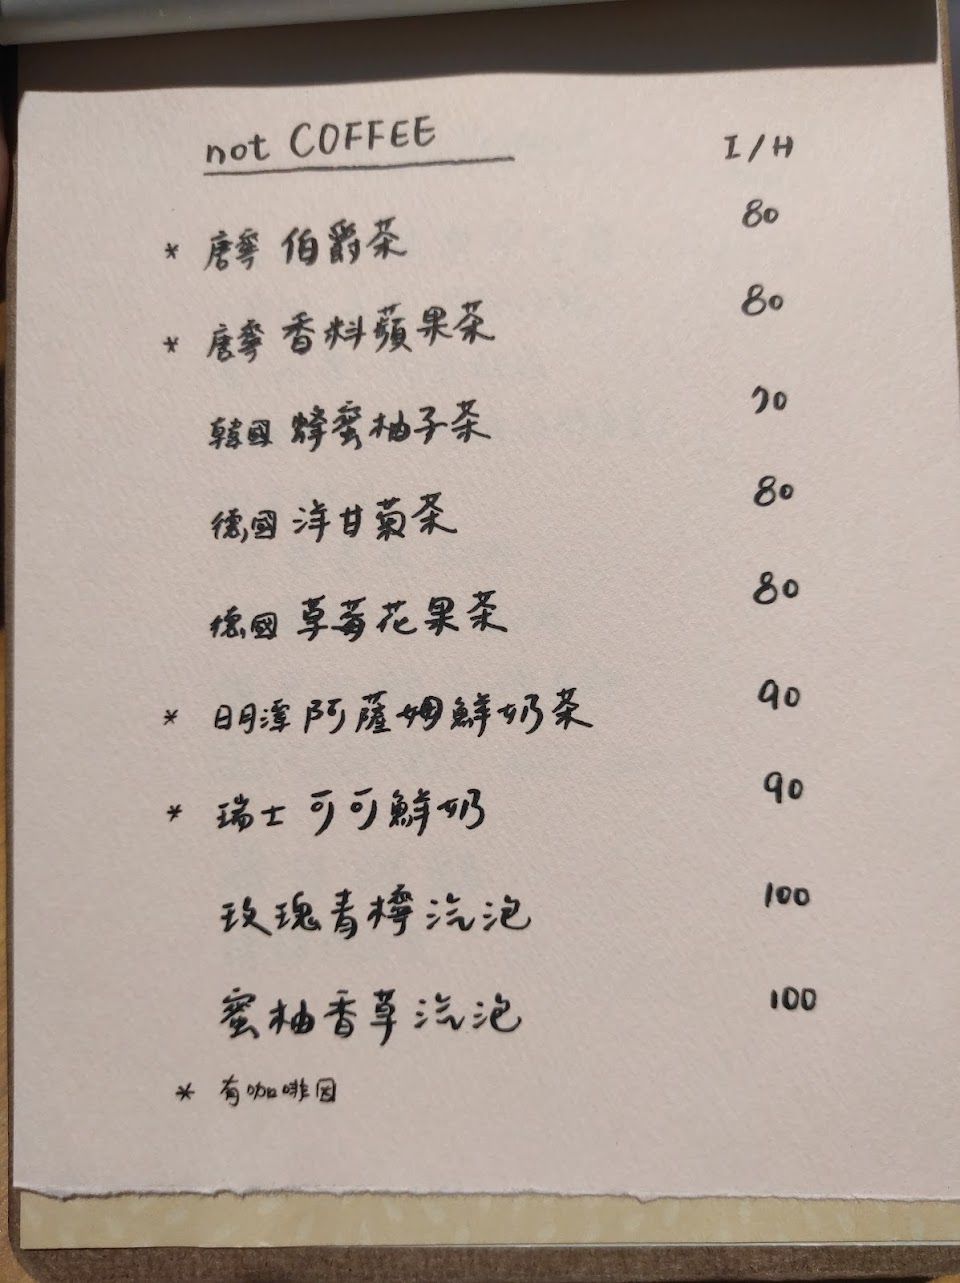 not COFFEE I/H
* 唐寧 伯爵茶 80
* 唐寧 香料蘋果茶 80
韓國 蜂蜜柚子茶 70
德國 洋甘菊茶 80
德國 草莓花果茶 80
* 日月潭 阿薩姆鮮奶茶 90
* 瑞士 可可鮮奶 90
玫瑰青檸汽泡 100
蜜柚香草汽泡 100
* 有咖啡因